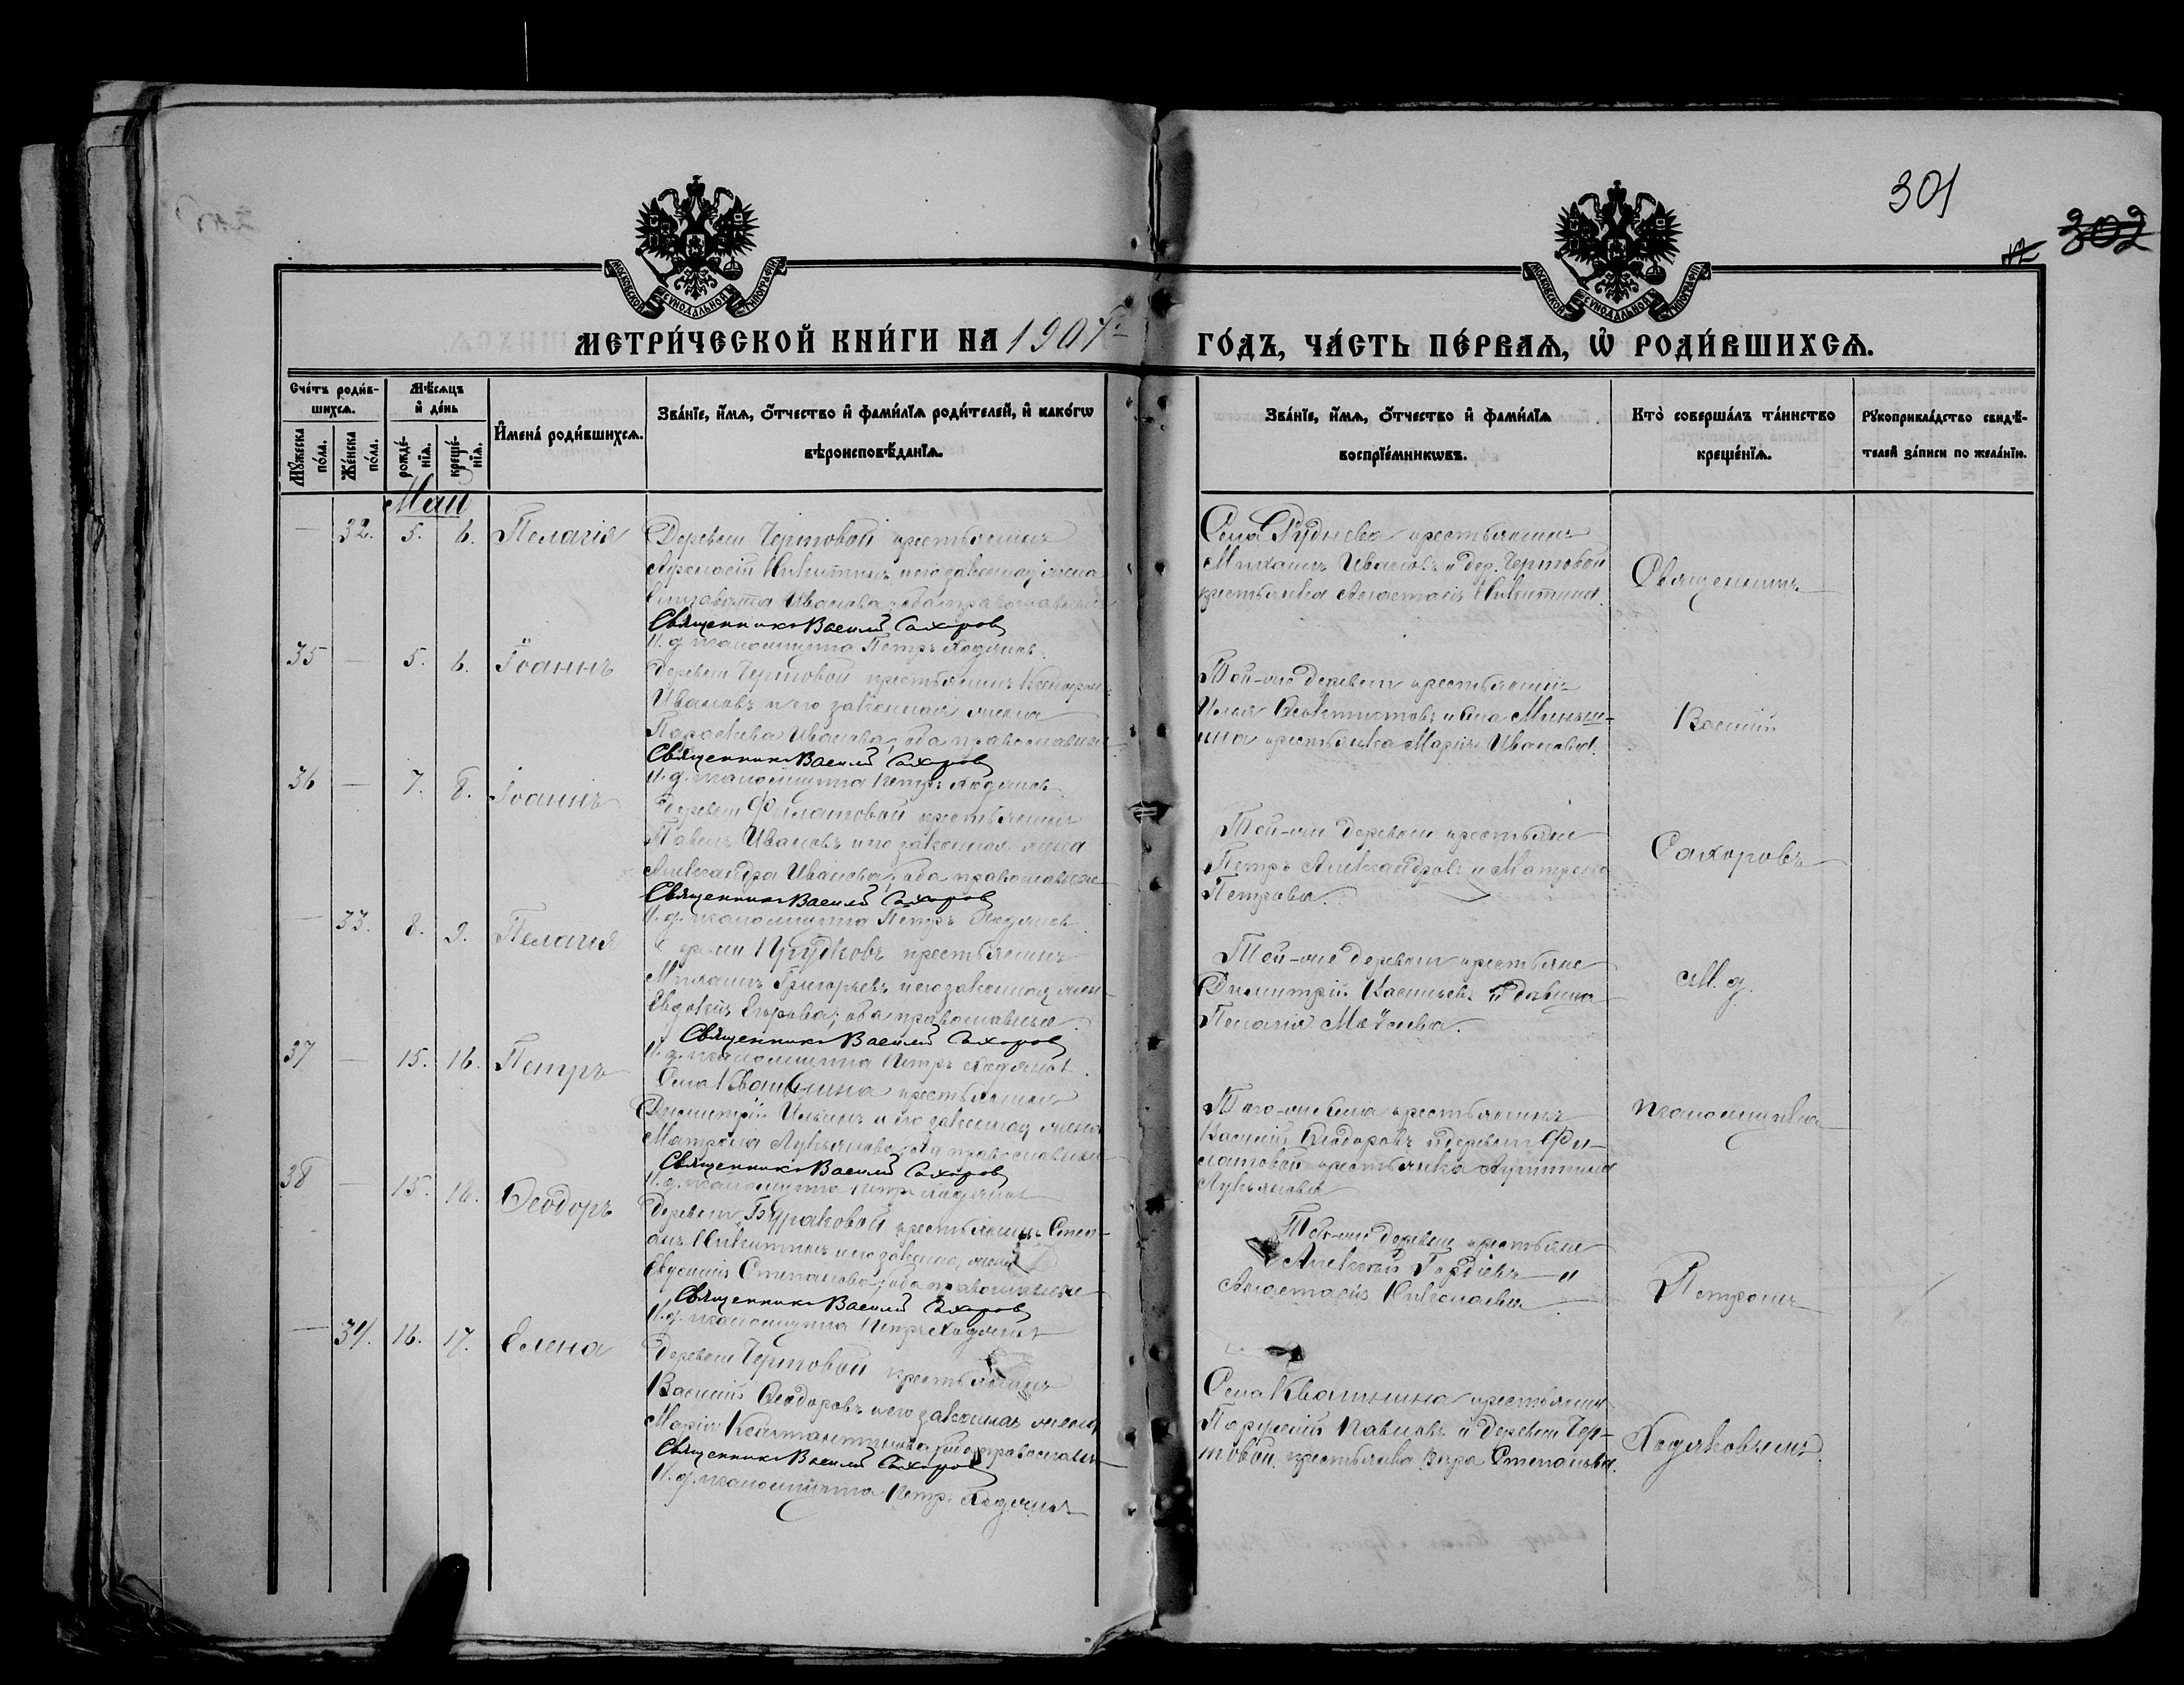 301
302
МОСКОВСКОЙ СѴНОДАЛЬНОЙ ТИПОГРАФІИ
МОСКОВСКОЙ СѴНОДАЛЬНОЙ ТИПОГРАФІИ
МЕТРИ́ЧЕСКОЙ КНИ́ГИ НА 1907 г.
ГО́ДЪ, ЧА́СТЬ ПЕ́РВАѦ, Ѡ҆ РОДИ́ВШИХСѦ.
Сче́тъ роди́в-
шихсѧ.
Мꙋ́жеска по́ла.
Же́нска по́ла.
Мѣ́сѧцъ
и҆ де́нь
рожде́-
нїѧ.
креще́-
нїѧ.
И҆мена̀ роди́вшихсѧ.
Зва́нїе, и҆́мѧ, ѻ҆́тчество и҆ фами́лїѧ роди́телей, и҆ како́гѡ
вѣроисповѣ́данїѧ.
Зва́нїе, и҆́мѧ, ѻ҆́тчество и҆ фами́лїѧ
воспрїе́мникѡвъ.
Кто̀ соверша́лъ та́инство
креще́нїѧ.
Рꙋкоприкла́дство свидѣ́-
телей за́писи по жела́нїю.
Май
— 32. 5. 6. Пелагія
Деревни Чертовой крестьянинъ
Никитинъ и его законная жена
Елизавета Иванова, оба православные
Священникъ Василій Сахаровъ
И. д. псаломщика Петръ Ходяковъ
Села Руднева крестьянинъ
Михаилъ Ивановъ и дер. Чертовой
крестьянка Анастасія Никитина.
Священникъ
35 — 5. 6. Іоаннъ
Деревни Чертовой крестьянинъ Ксенофонтъ
Ивановъ и его законная жена
Параскева Иванова, оба православные
Священникъ Василій Сахаровъ
И. д. псаломщика Петръ Ходяковъ
Той-же деревни крестьянинъ
Илья Ѳеоктистовъ и села
крестьянка Марія Иванова.
Василій
36 — 7. 8. Іоаннъ
Деревни Филатовой крестьянинъ
Павелъ Ивановъ и его законная жена
Александра Иванова, оба православные
Священникъ Василій Сахаровъ
И. д. псаломщика Петръ Ходяковъ
Той-же деревни крестьяне
Петръ Александровъ и Матрона
Петрова.
Сахаровъ
— 33. 8. 9. Пелагія
Прудковъ крестьянинъ
Михаилъ Григорьевъ и его законная жена
Евдокія Егорова; оба православные.
Священникъ Василій Сахаровъ
И. д. псаломщика Петръ Ходяковъ
Той-же деревни крестьяне
Димитрій Васильевъ и дѣвица
Пелагія
И. д.
37 — 15. 16. Петръ
Села Квашнина крестьянинъ
Димитрій Ильинъ и его законная жена
Матрона Лукьянова, оба православные
Священникъ Василій Сахаровъ
И. д. псаломщика Петръ Ходяковъ
Того-же села крестьянинъ
Василій Ѳеодоровъ и деревни Фи-
латовой крестьянка
Лукьянова
псаломщика
38 — 15. 16. Ѳеодоръ
Деревни Бураковой крестьянинъ Степ-
анъ Никитинъ и его законная жена
Евдокія Степанова, оба православные
Священникъ Василій Сахаровъ
И. д. псаломщика Петръ Ходяковъ
Той-же деревни крестьяне
Алексѣй Гордѣевъ и
Анастасія Николаева
Петромъ
— 34. 16. 17. Елена
Деревни Чертовой крестьянинъ
Василій Ѳеодоровъ и его законная жена
Марія Константинова, оба православные
Священникъ Василій Сахаровъ
И. д. псаломщика Петръ Ходяковъ
Села Квашнина крестьянинъ
Парѳеній Павловъ и деревни Чер-
товой крестьянка Вѣра Степанова.
Ходяковымъ.